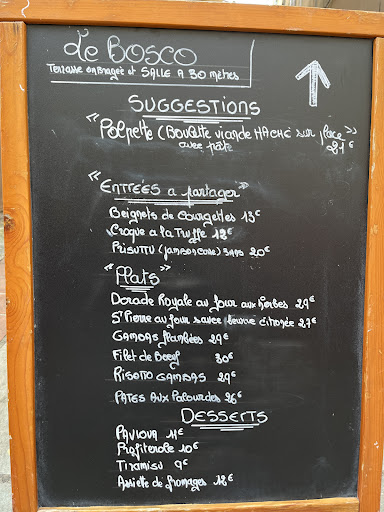 Le BOSCO
Terrasse ombragée et SALLE A 30 mètres
SUGGESTIONS
"Polpette (Boulette viande HACHÉ sur place"
avec pâte 21€
"ENTRÉES a partager"
Beignets de Courgettes 13€
Croque a la Truffe 12€
PRISUTTU (JAMBON CORSE) 20€
"Plats"
Dorade Royale au four aux herbes 29€
St Pierre au four sauce citronée 27€
GAMBAS flambées 29€
Filet de Boeuf 30€
RISOTTO GAMBAS 29€
PATES AUX Palourdes 26€
DESSERTS
PAVLOVA 11€
Profiterole 10€
Tiramisu 9€
Assiette de fromages 12€